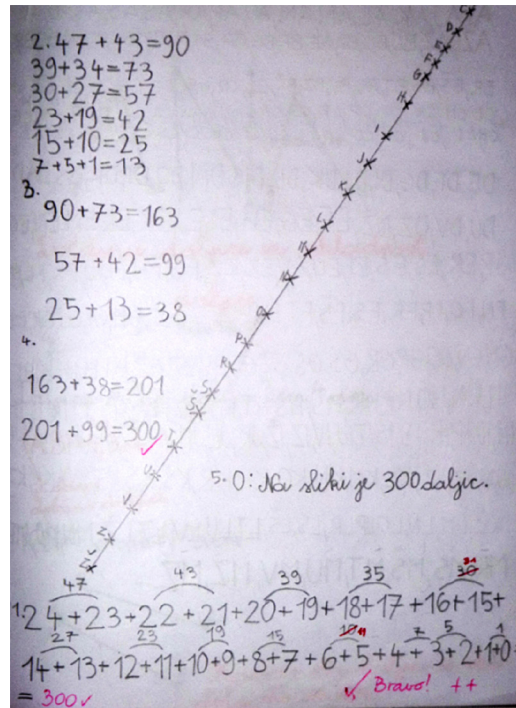 2. 47+43=90
39+34=73
30+27=57
23+19=42
15+10=25
7+5+1=13
3.
90+73=163
57+42=99
25+13=38
4.
163+38=201
201+99=300
5. O: Na sliki je 300 daljic.
C
D
E
F
G
H
I
J
K
L
M
N
O
P
R
S
Š
T
U
V
Z
Ž
47 43 39 35 31
1. 24+23+22+21+20+19+18+17+16+15+
27 23 19 15 11 7 5 1
14+13+12+11+10+9+8+7+6+5+4+3+2+1+0
= 300
Bravo! ++